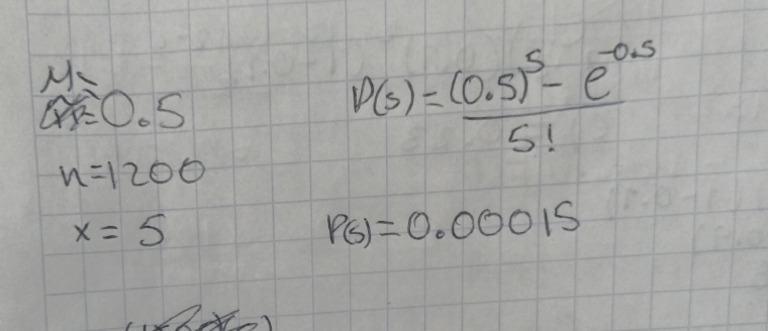 M=0.5
n=1200
x=5
P(5)=(0.5)^5-e^-0.5
5!
P(5)=0.00015